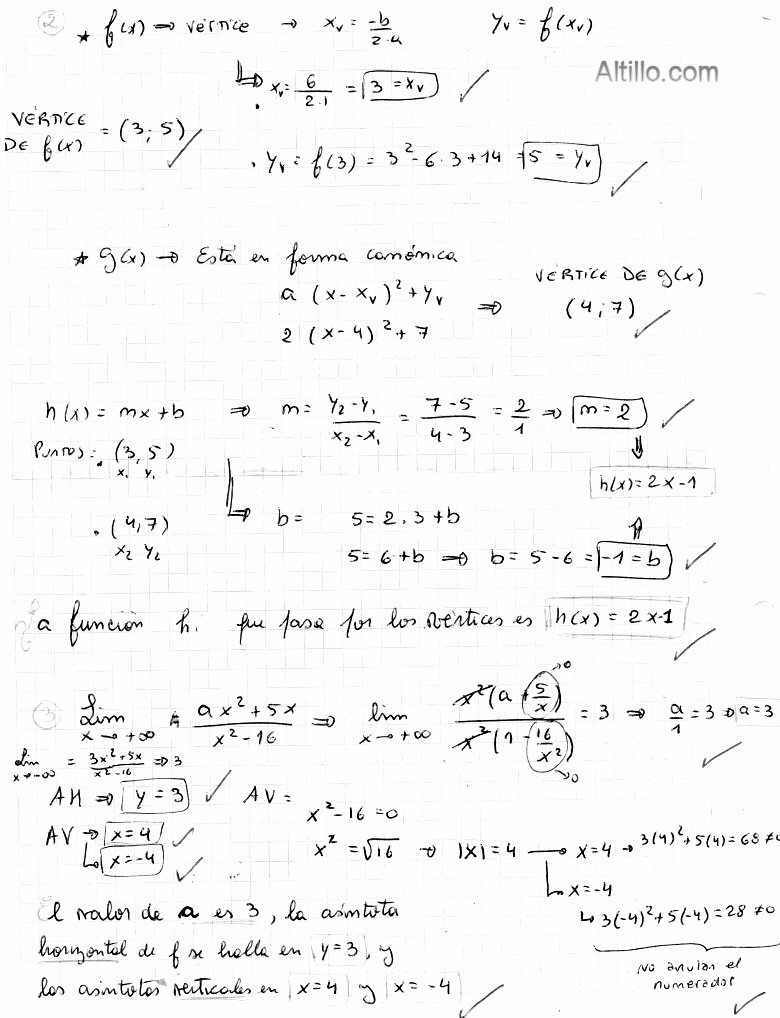 ② * f(x) → vértice → xv = -b/2·a yv = f(xv)
Altillo.com
· xv = 6/2·1 = 3 = xv
VÉRTICE DE f(x) = (3; 5)
· yv = f(3) = 3² - 6·3 + 14 = 5 = yv
* g(x) → Está en forma canónica
a (x - xv)² + yv ⇒ VÉRTICE DE g(x)
2 (x - 4)² + 7 (4; 7)
h(x) = mx + b ⇒ m = y2 - y1/x2 - x1 = 7 - 5/4 - 3 = 2/1 ⇒ m = 2
PUNTOS: · (3, 5)
x1 y1
h(x) = 2x - 1
· (4, 7)
x2 y2
b = 5 = 2 . 3 + b
5 = 6 + b ⇒ b = 5 - 6 = -1 = b
La función h. que pasa por los vértices es h(x) = 2x-1
③ Lim x→+∞ ax² + 5x/x² - 16 ⇒ lim x→+∞ x²(a + 5/x)/x²(1 - 16/x²) = 3 ⇒ a/1 = 3 ⇒ a = 3
→0
→0
Lim x→-∞ = 3x² + 5x/x² - 16 ⇒ 3
AH ⇒ y = 3 AV =
x² - 16 = 0
AV → x = 4
x = -4
x² = √16 → |x| = 4 → x = 4 → 3(4)² + 5(4) = 68 ≠ 0
x = -4
↳ 3(-4)² + 5(-4) = 28 ≠ 0
No anulan el
numerador
El valor de a es 3, la asíntota
horizontal de f se halla en y = 3, y
las asíntotas verticales en x = 4 y x = -4